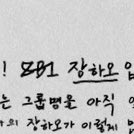 ! 장하오 입
는 그룹명은 아직
의 장하오가 이렇게